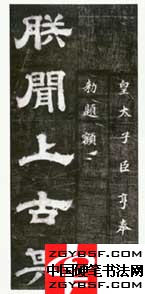 皇太子臣亨奉
勅題額
朕聞上古其
ZGYBSF.COM
中国硬笔书法网